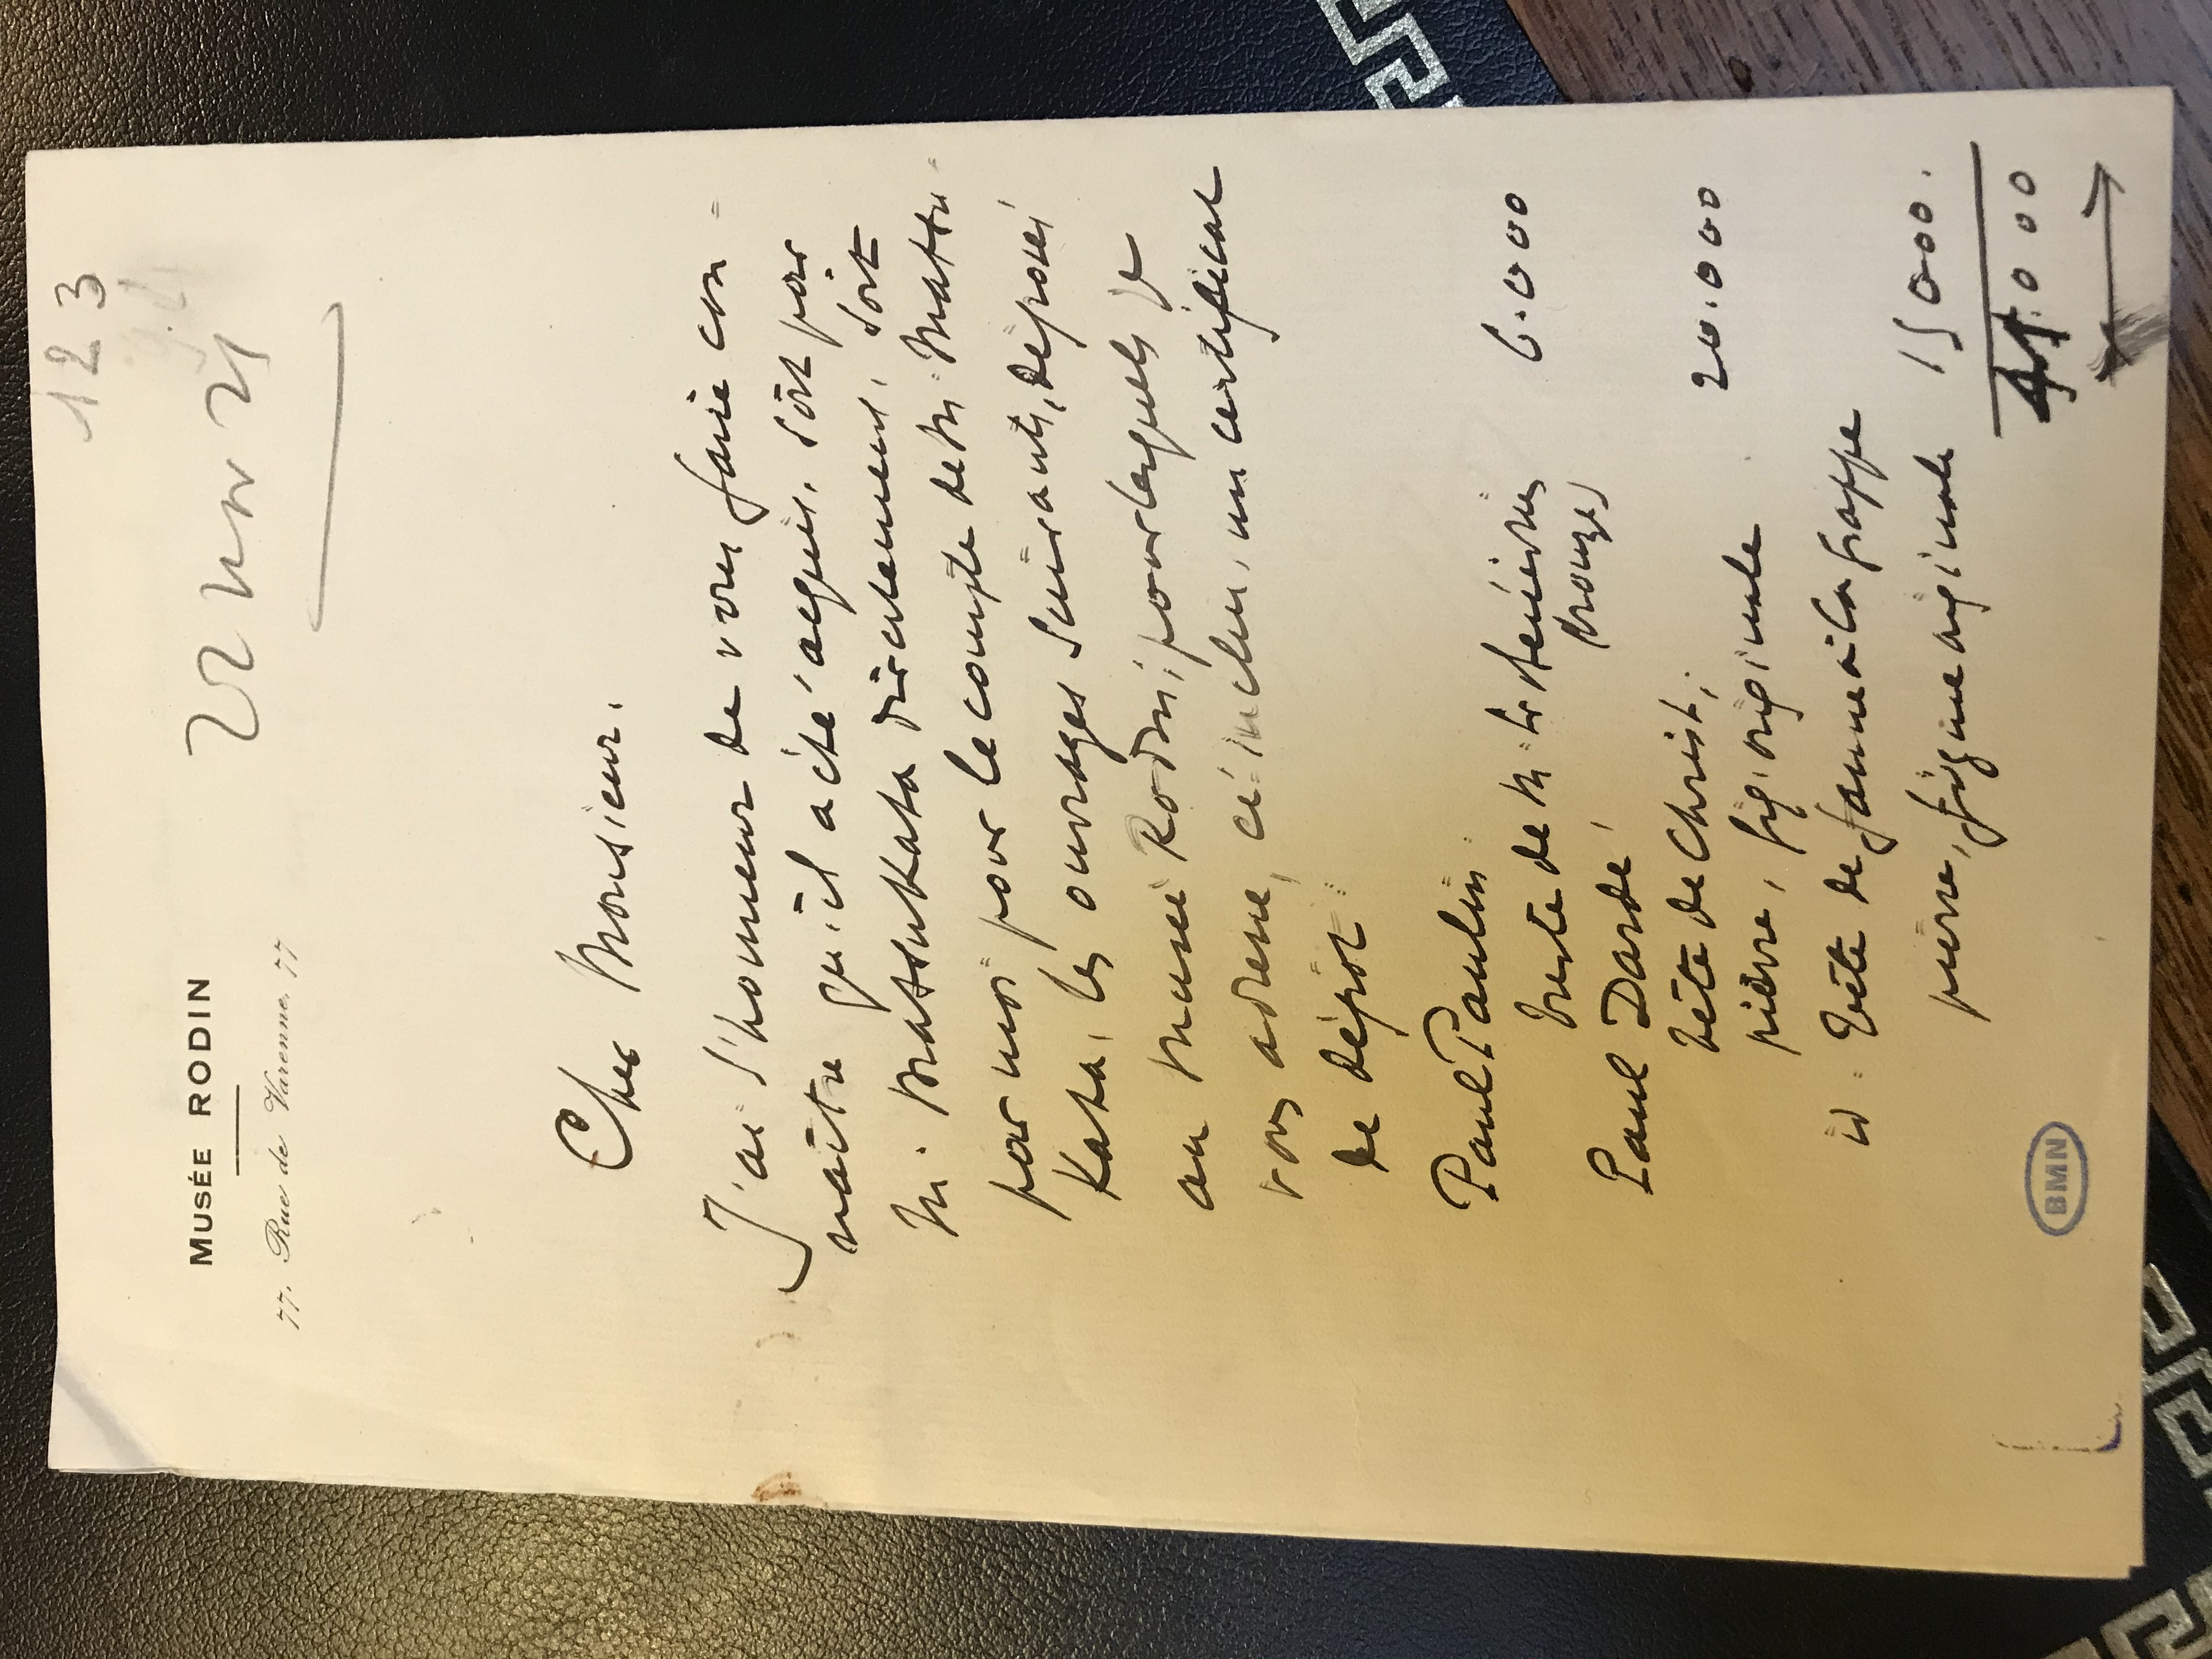 123
MUSÉE RODIN
77, Rue de Varenne, 77
22 nov 21
Cher Monsieur.
J'ai l'honneur de vous faire con=
naître qu'il a été acquis, soit par
M. Matsukata directement, soit
par moi pour le compte de M. Matsu=
kata, les ouvrages suivants, déposés
au Musée Rodin, pour lesquels je
vous adresse, ci inclus, un certificat
de dépot:
Paul Paulin.
buste de M.
bronze 6.000
Paul Dardé,
tête de Christ,
pierre, fig. originale 20.000
id. Tête de femme à la frappe
pierre, figure originale 15000.
41.000
BMN